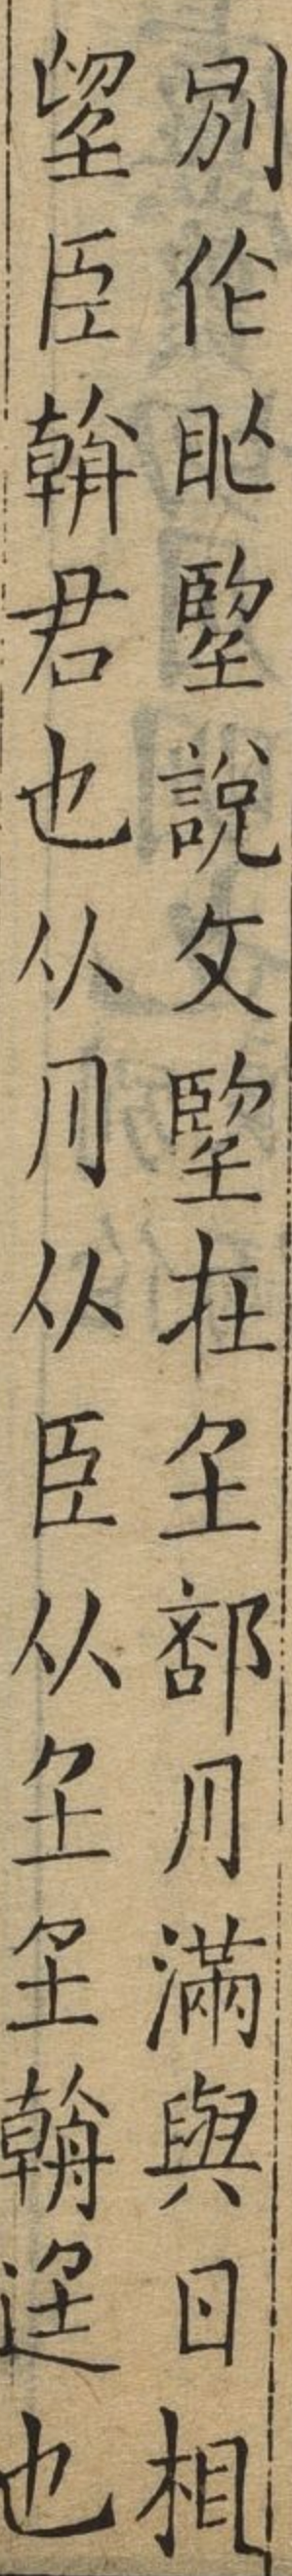 別作朢說文朢在𡈼部月滿與日相
望臣朝君也从月从臣从𡈼𡈼朝廷也